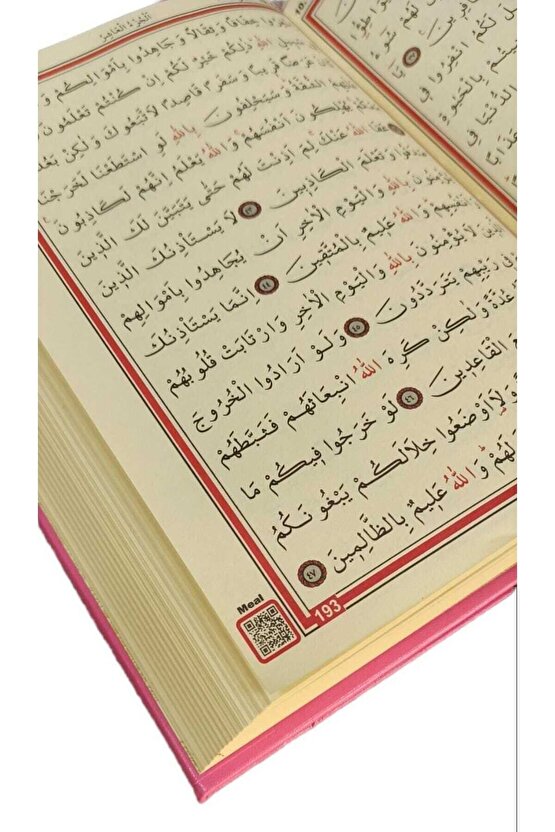 اَلْجُزْءُ الْعَاشِرُ
خِفَافًا وَثِقَالًا وَجَاهِدُوا بِاَمْوَالِكُمْ
اللّٰهِ ذٰلِكُمْ خَيْرٌ لَكُمْ اِنْ كُنْتُمْ تَعْلَمُونَ
قَرِيبًا وَسَفَرًا قَاصِدًا لَاتَّبَعُوكَ وَلٰكِنْ
الشُّقَّةُ وَسَيَحْلِفُونَ بِاللّٰهِ لَوِ اسْتَطَعْنَا لَخَرَجْنَا
يُهْلِكُونَ اَنْفُسَهُمْ وَاللّٰهُ يَعْلَمُ اِنَّهُمْ لَكَاذِبُونَ
اللّٰهُ عَنْكَ لِمَ اَذِنْتَ لَهُمْ حَتّٰى يَتَبَيَّنَ لَكَ الَّذِينَ
وَتَعْلَمَ الْكَاذِبِينَ ٤٣ لَا يَسْتَاْذِنُكَ الَّذِينَ
بِاللّٰهِ وَالْيَوْمِ الْاٰخِرِ اَنْ يُجَاهِدُوا بِاَمْوَالِهِمْ
وَاللّٰهُ عَلِيمٌ بِالْمُتَّقِينَ ٤٤ اِنَّمَا يَسْتَاْذِنُكَ
لَا يُؤْمِنُونَ بِاللّٰهِ وَالْيَوْمِ الْاٰخِرِ وَارْتَابَتْ قُلُوبُهُمْ
رَيْبِهِمْ يَتَرَدَّدُونَ ٤٥ وَلَوْ اَرَادُوا الْخُرُوجَ
عُدَّةً وَلٰكِنْ كَرِهَ اللّٰهُ انْبِعَاثَهُمْ فَثَبَّطَهُمْ
الْقَاعِدِينَ ٤٦ لَوْ خَرَجُوا فِيكُمْ مَا
وَلَا۬اَوْضَعُوا خِلَالَكُمْ يَبْغُونَكُمُ
لَهُمْ وَاللّٰهُ عَلِيمٌ بِالظَّالِمِينَ ٤٧
Meal
193